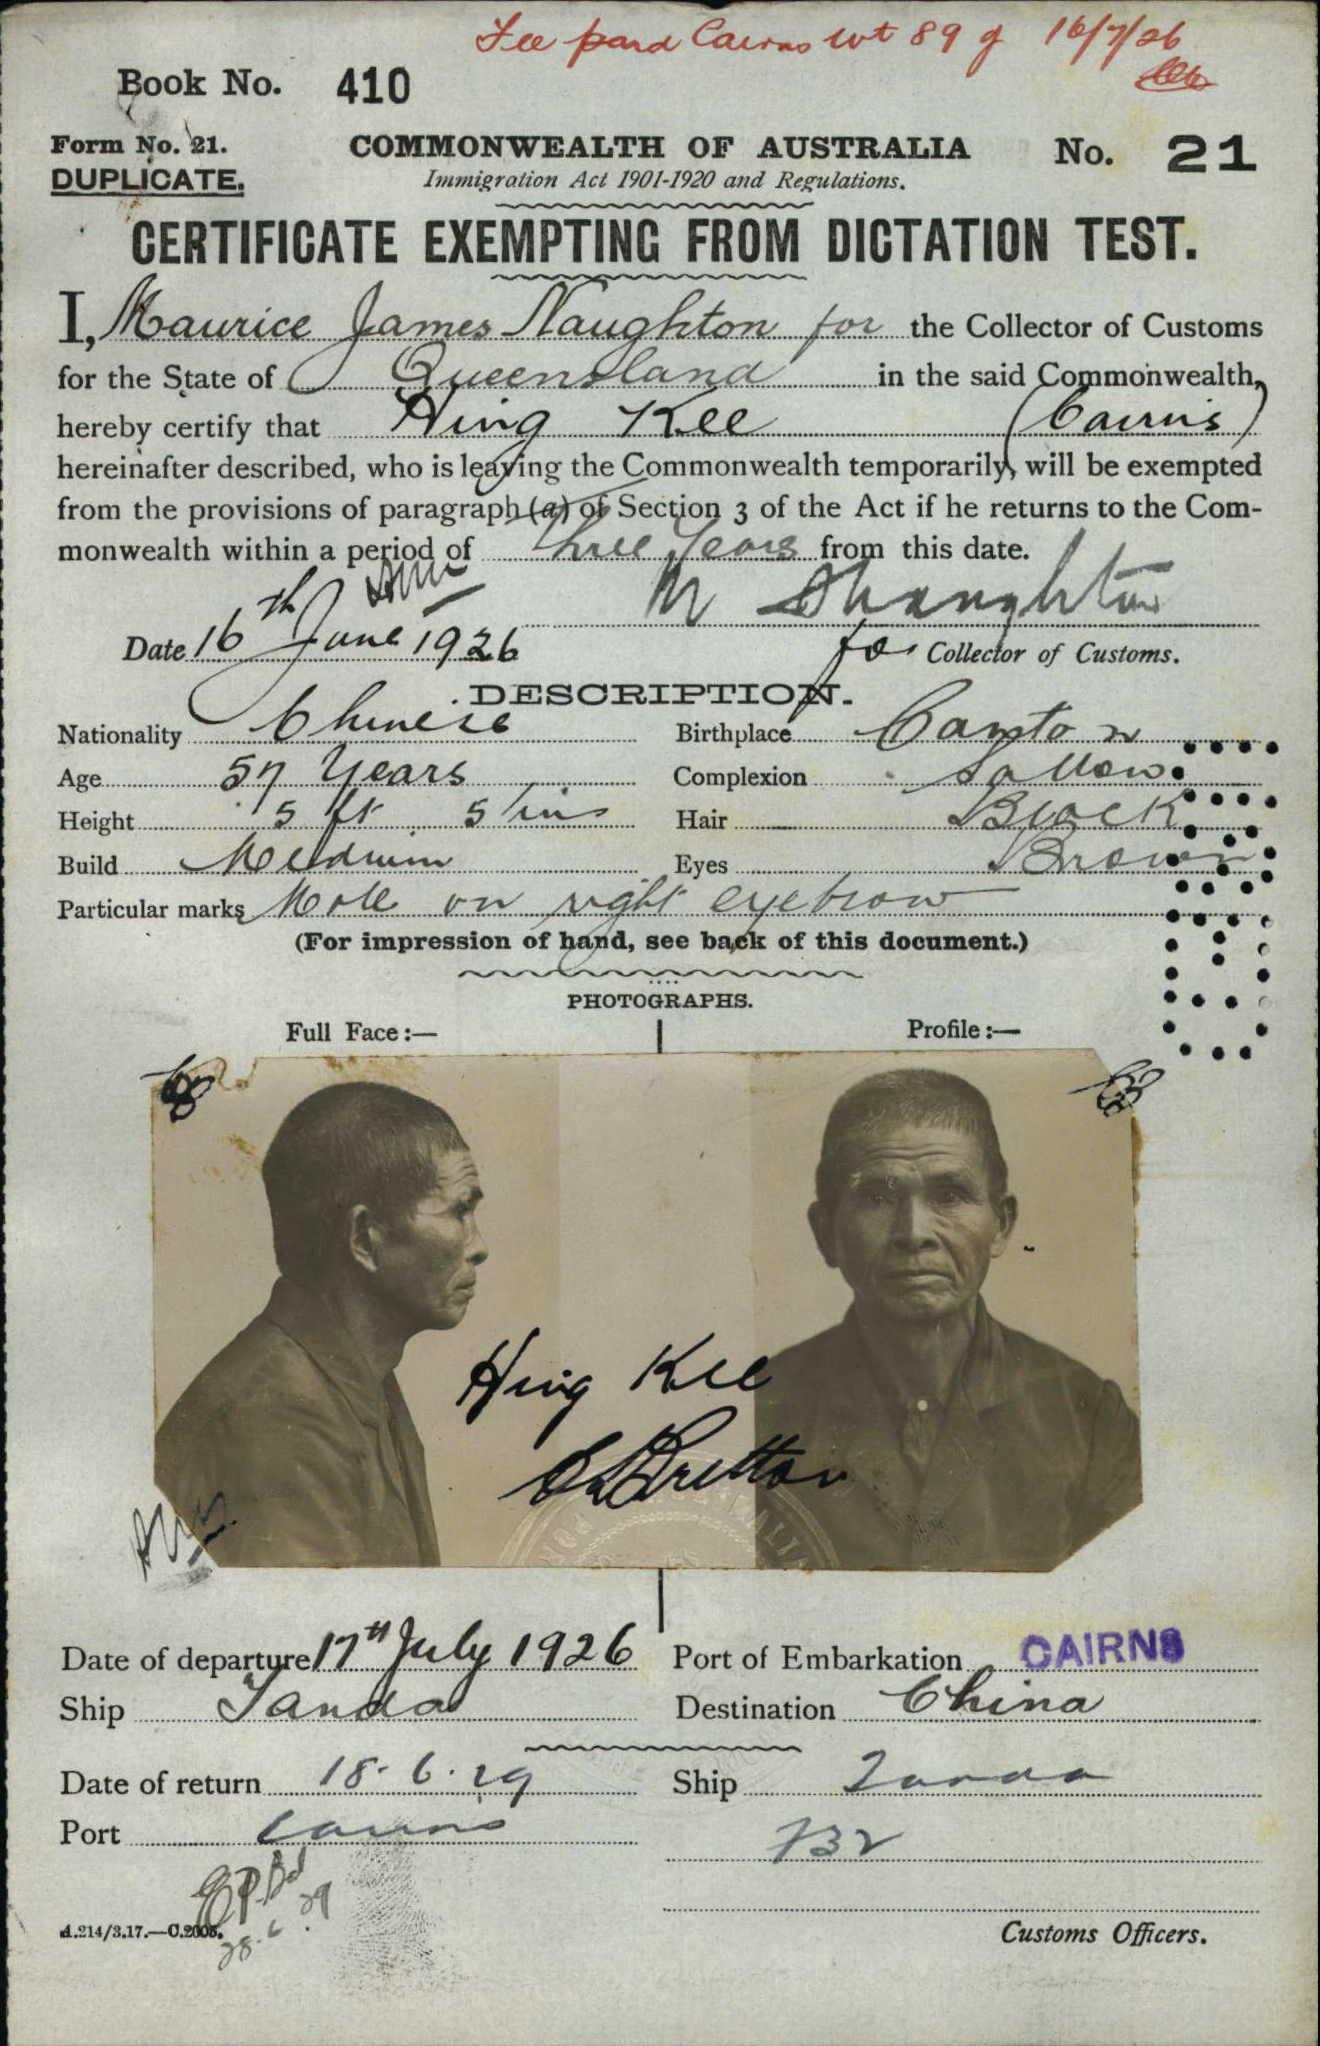 Fee paid Cairns wt 89 of 16/7/26
Book No. 410
Form No. 21.
DUPLICATE.
COMMONWEALTH OF AUSTRALIA
No. 21
Immigration Act 1901-1920 and Regulations.
CERTIFICATE EXEMPTING FROM DICTATION TEST.
I, Maurice James Naughton for the Collector of Customs
for the State of Queensland in the said Commonwealth,
hereby certify that Hing Kee (Cairns)
hereinafter described, who is leaving the Commonwealth temporarily, will be exempted
from the provisions of paragraph (a) of Section 3 of the Act if he returns to the Com-
monwealth within a period of three years from this date.
Date 16th June 1926
for Collector of Customs.
DESCRIPTION.
Nationality Chinese
Birthplace Canton
Age 57 Years
Complexion Sallow
Height 5 ft 5 ins
Hair Black
Build Medium
Eyes Brown
Particular marks Mole on right eyebrow
(For impression of hand, see back of this document.)
PHOTOGRAPHS.
Full Face:—
Profile:—
Hing Kee
Date of departure 17th July 1926
Port of Embarkation CAIRNS
Ship Tanda
Destination China
Date of return 18.6.29
Ship Tanda
Port Cairns
28.6.29
A.214/3.17.—C.2005.
Customs Officers.